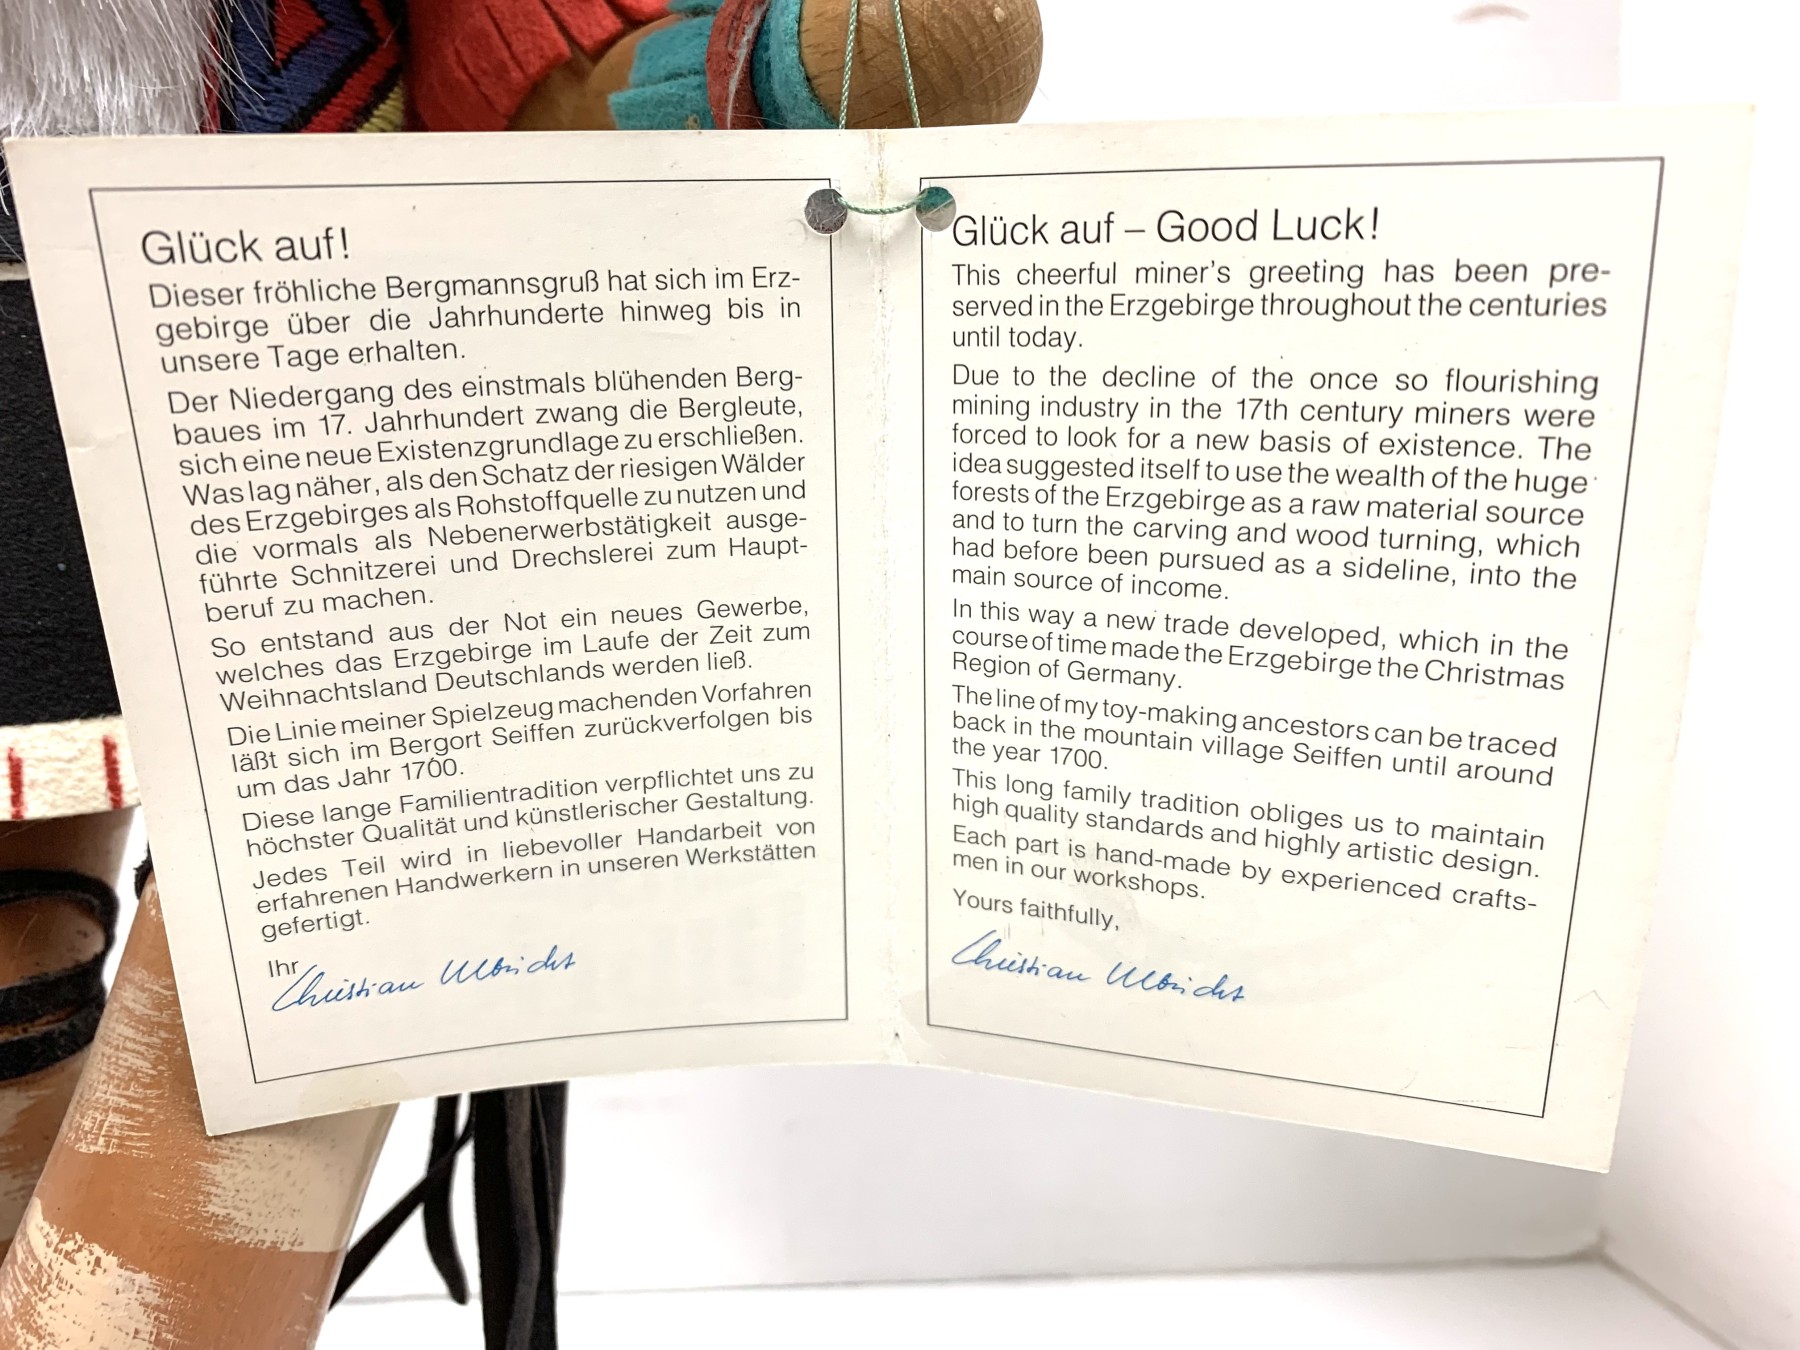 Glück auf!
Dieser fröhliche Bergmannsgruß hat sich im Erz-
gebirge über die Jahrhunderte hinweg bis in
unsere Tage erhalten.
Der Niedergang des einstmals blühenden Berg-
baues im 17. Jahrhundert zwang die Bergleute,
sich eine neue Existenzgrundlage zu erschließen.
Was lag näher, als den Schatz der riesigen Wälder
des Erzgebirges als Rohstoffquelle zu nutzen und
die vormals als Nebenerwerbstätigkeit ausge-
führte Schnitzerei und Drechslerei zum Haupt-
beruf zu machen.
So entstand aus der Not ein neues Gewerbe,
welches das Erzgebirge im Laufe der Zeit zum
Weihnachtsland Deutschlands werden ließ.
Die Linie meiner Spielzeug machenden Vorfahren
läßt sich im Bergort Seiffen zurückverfolgen bis
um das Jahr 1700.
Diese lange Familientradition verpflichtet uns zu
höchster Qualität und künstlerischer Gestaltung.
Jedes Teil wird in liebevoller Handarbeit von
erfahrenen Handwerkern in unseren Werkstätten
gefertigt.
Ihr
Christian Ulbricht
Glück auf – Good Luck!
This cheerful miner's greeting has been pre-
served in the Erzgebirge throughout the centuries
until today.
Due to the decline of the once so flourishing
mining industry in the 17th century miners were
forced to look for a new basis of existence. The
idea suggested itself to use the wealth of the huge
forests of the Erzgebirge as a raw material source
and to turn the carving and wood turning, which
had before been pursued as a sideline, into the
main source of income.
In this way a new trade developed, which in the
course of time made the Erzgebirge the Christmas
Region of Germany.
The line of my toy-making ancestors can be traced
back in the mountain village Seiffen until around
the year 1700.
This long family tradition obliges us to maintain
high quality standards and highly artistic design.
Each part is hand-made by experienced crafts-
men in our workshops.
Yours faithfully,
Christian Ulbricht